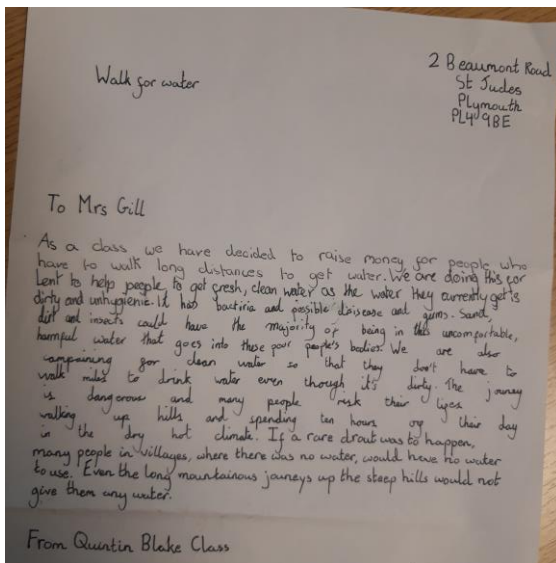 Walk for water
2 Beaumont Road
St Judes
Plymouth
PL4 9BE
To Mrs Gill
As a class we have decided to raise money for people who
have to walk long distances to get water. We are doing this for
Lent to help people to get fresh, clean water as the water they currently get is
dirty and unhygienic. It has bactiria and possible disease and germs. Sand,
dirt and insects could have the majority of being in this uncomfortable,
harmful water that goes into these poor people's bodies. We are also
campaining for clean water so that they don't have to
walk miles to drink water even though it's dirty. The journey
is dangerous and many people risk their lifes
walking up hills and spending ten hours of their day
in the dry hot climate. If a rare drout was to happen,
many people in villages, where there was no water, would have no water
to use. Even the long mountainous journeys up the steep hills would not
give them any water.
From Quintin Blake Class